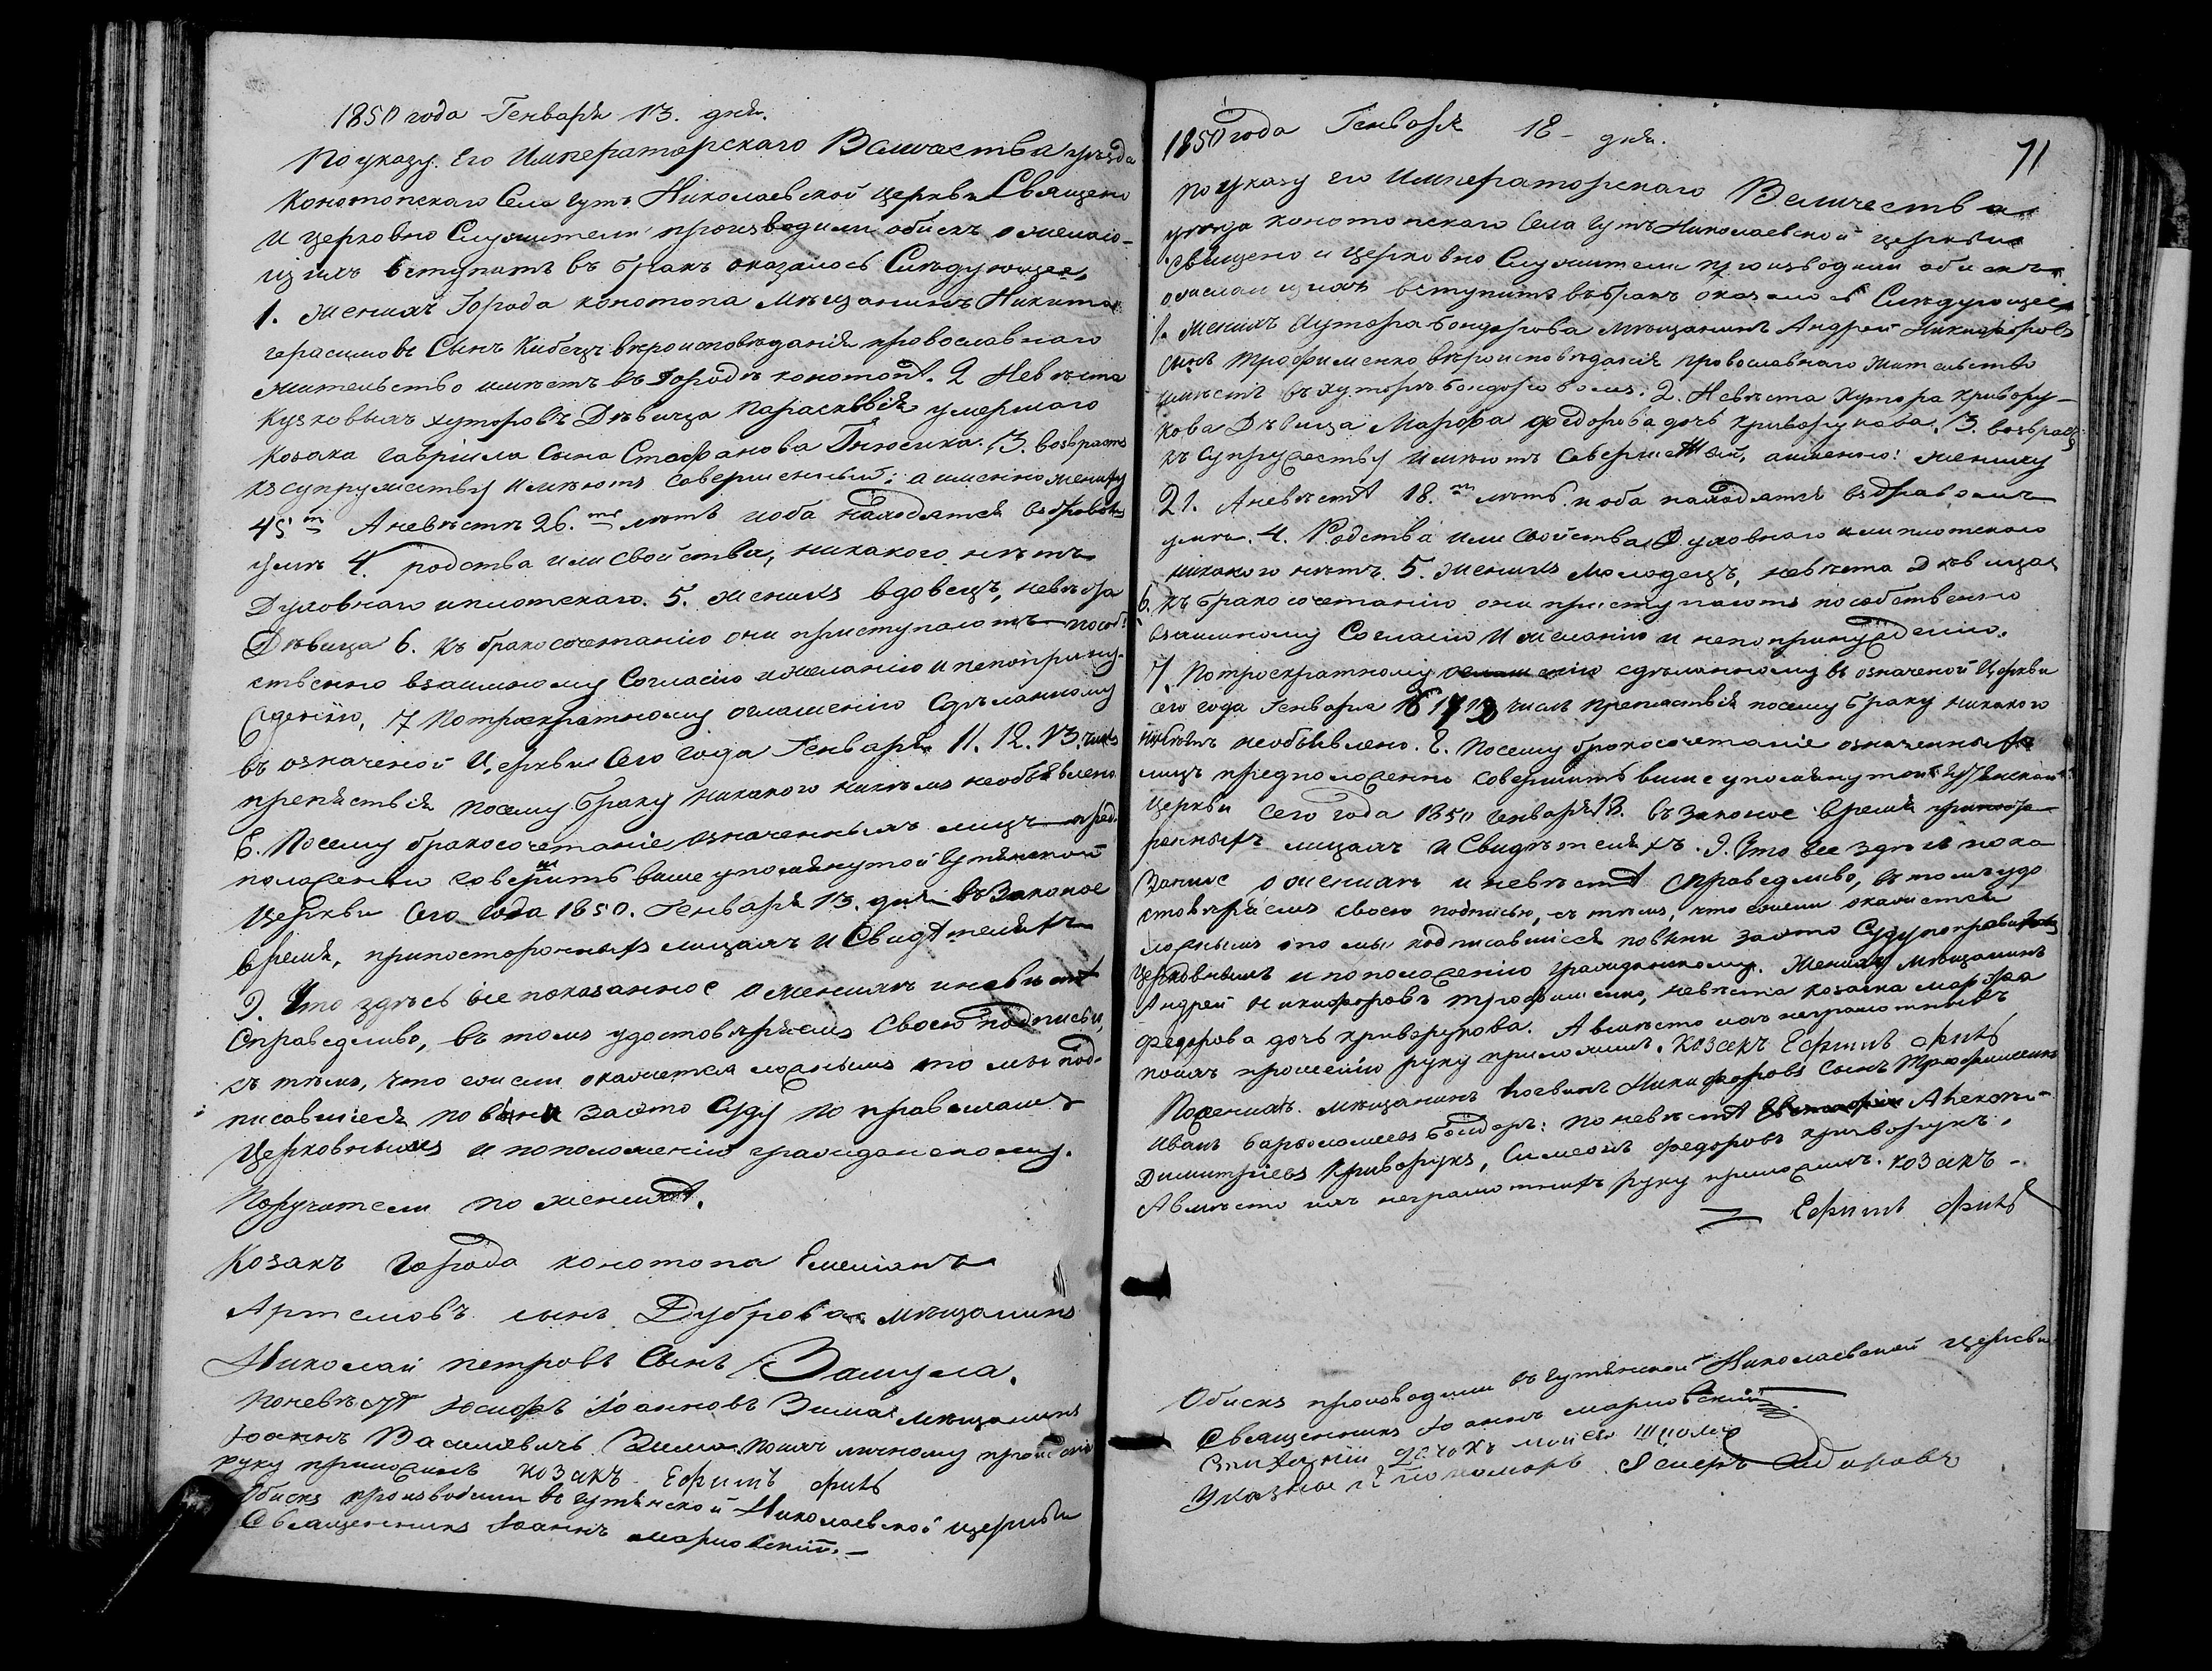 1850 года Генваря 13. дня.
По указу Его Императорскаго Величества уезда
Конотопскаго Села Гутъ Николаевской церкви Священо
и церковно Служители производили обискъ о желаю-
щихъ вступить въ бракъ оказалось Следующее,
1. Женихъ Города конотопа мещанинъ Никита
герасимовъ Сынъ Кибецъ вероисповеданія православнаго
жительство имеетъ въ Городе конотопѣ. 2 Невеста
Кузковыхъ хуторовъ Девица Параскевія умершаго
козака Гавріила Сына Стефанова Гнюсика. 3. возрастъ
къ супружеству имеютъ совершенный: а именно жениху
45 А невесте 26. летъ и оба находятся въ здравомъ
уме 4. родства или свойства, никакого нетъ
Духовнаго и плотскаго. 5. женихъ вдовецъ, невеста
Девица 6. къ бракосочетанію они приступаютъ по соб-
ственно взаимному Согласію и желанію и непопринуж-
денію, 7 По троекратному оглашенію Сделанному
въ означеной Церкви Сего года Генваря 11. 12. 13. числъ
препятствія посему браку никакого никемъ необъявлено
8. Посему бракосочетаніе означенныхъ лицъ пред-
положенно совершить више упомянутой Гутянской
Церкви Сего Года 1850. Генваря 13. дня въ Законое
время, при посторонныхъ лицахъ и Свидѣтеляхъ
9. Что здесь все показанное о женихе и невестѣ
Справедливо, въ томъ удостоверяемъ Своею подписью,
съ темъ, что если окажется ложнымъ то мы под-
писавшіеся повини за то Суду по правиламъ
Церковнымъ и по положенію гражданскому.
Поручатели по женихѣ.
Козакъ Города конотопа Емеліанъ
Артемовъ сынъ Дуброва. мещанинъ
Николай петровъ Сынъ Замула.
По невестѣ Юсифъ Іоанновъ Зима мещанинъ
Іоаннъ Василіевичъ Зима. по ихъ личному прошенію
руку приложилъ козакъ Ефимъ Фикъ
Обискъ производили въ Гутянской Николаевской церкви
Священникъ Іоаннъ
1850 года Генваря 18 дня.
71
По указу его Императорскаго Величества
уезда конотопскаго Села Гутъ Николаевской церкви
Священо и Церковно Служители производили обискъ
о желающихъ вступить въ бракъ оказалось Следующее
1. Женихъ Хутора бондарева мещанинъ Андрей Никифоровъ
сынъ Трофименко вероисповеданія православнаго жительство
имеетъ въ хуторе бондоревомъ. 2. Невеста Хутора Кривору-
кова Девица Марфа федорова дочь криворукова. 3. возрастъ
къ Супружеству имеютъ Совершенный, а именно: жениху
21. А невестѣ 18. летъ и оба находятся въ здравомъ
уме. 4. Родства или Свойства Духовнаго или плотскаго
никакого нетъ. 5. Женихъ Молодецъ, невеста Девица
6. къ бракосочетанію они приступаютъ по собственно
взаимному Согласію и желанію и непопринужденію.
7. По троекратному оглашенію сделанному въ означеной Церкви
сего года Генваря 16 17 18 числъ препятствія посему браку никакого
никемъ необъявлено. 8. Посему бракосочетаніе означенныхъ
лицъ предположенно совершить више упомянутой Гутянской
Церкви Сего года 1850 Генваря 18. въ Законое время при посто-
ронныхъ лицахъ и Свидетеляхъ. 9. Что все здесь пока
занное о женихе и невестѣ справедливо, въ томъ удо
стоверяемъ своею подписью, съ темъ, что если окажется
ложнымъ то мы подписавшіеся повини за то Суду по правиламъ
Церковнымъ и по положенію гражданскому. Женихъ мещанинъ
Андрей Никифоровъ Трофименко, невеста козачка марфа
Федорова дочь криворукова. А вместо ихъ неграмотныхъ
по ихъ прошенію руку приложилъ. козакъ Ефимъ Фикъ
По женихе. мещанинъ Никифоровъ Сынъ Трофименко
Иванъ Варфоломеевъ бондарь: по невестѣ Алексей
Димитріевъ Криворукъ, Симеонъ федоровъ криворукъ.
А вместо ихъ неграмотныхъ руку приложилъ. козакъ-
Ефимъ Фикъ
Обискъ производили въ Гутянской Николаевской церкви
Священникъ Іоаннъ
Дячокъ
Указной пономарь